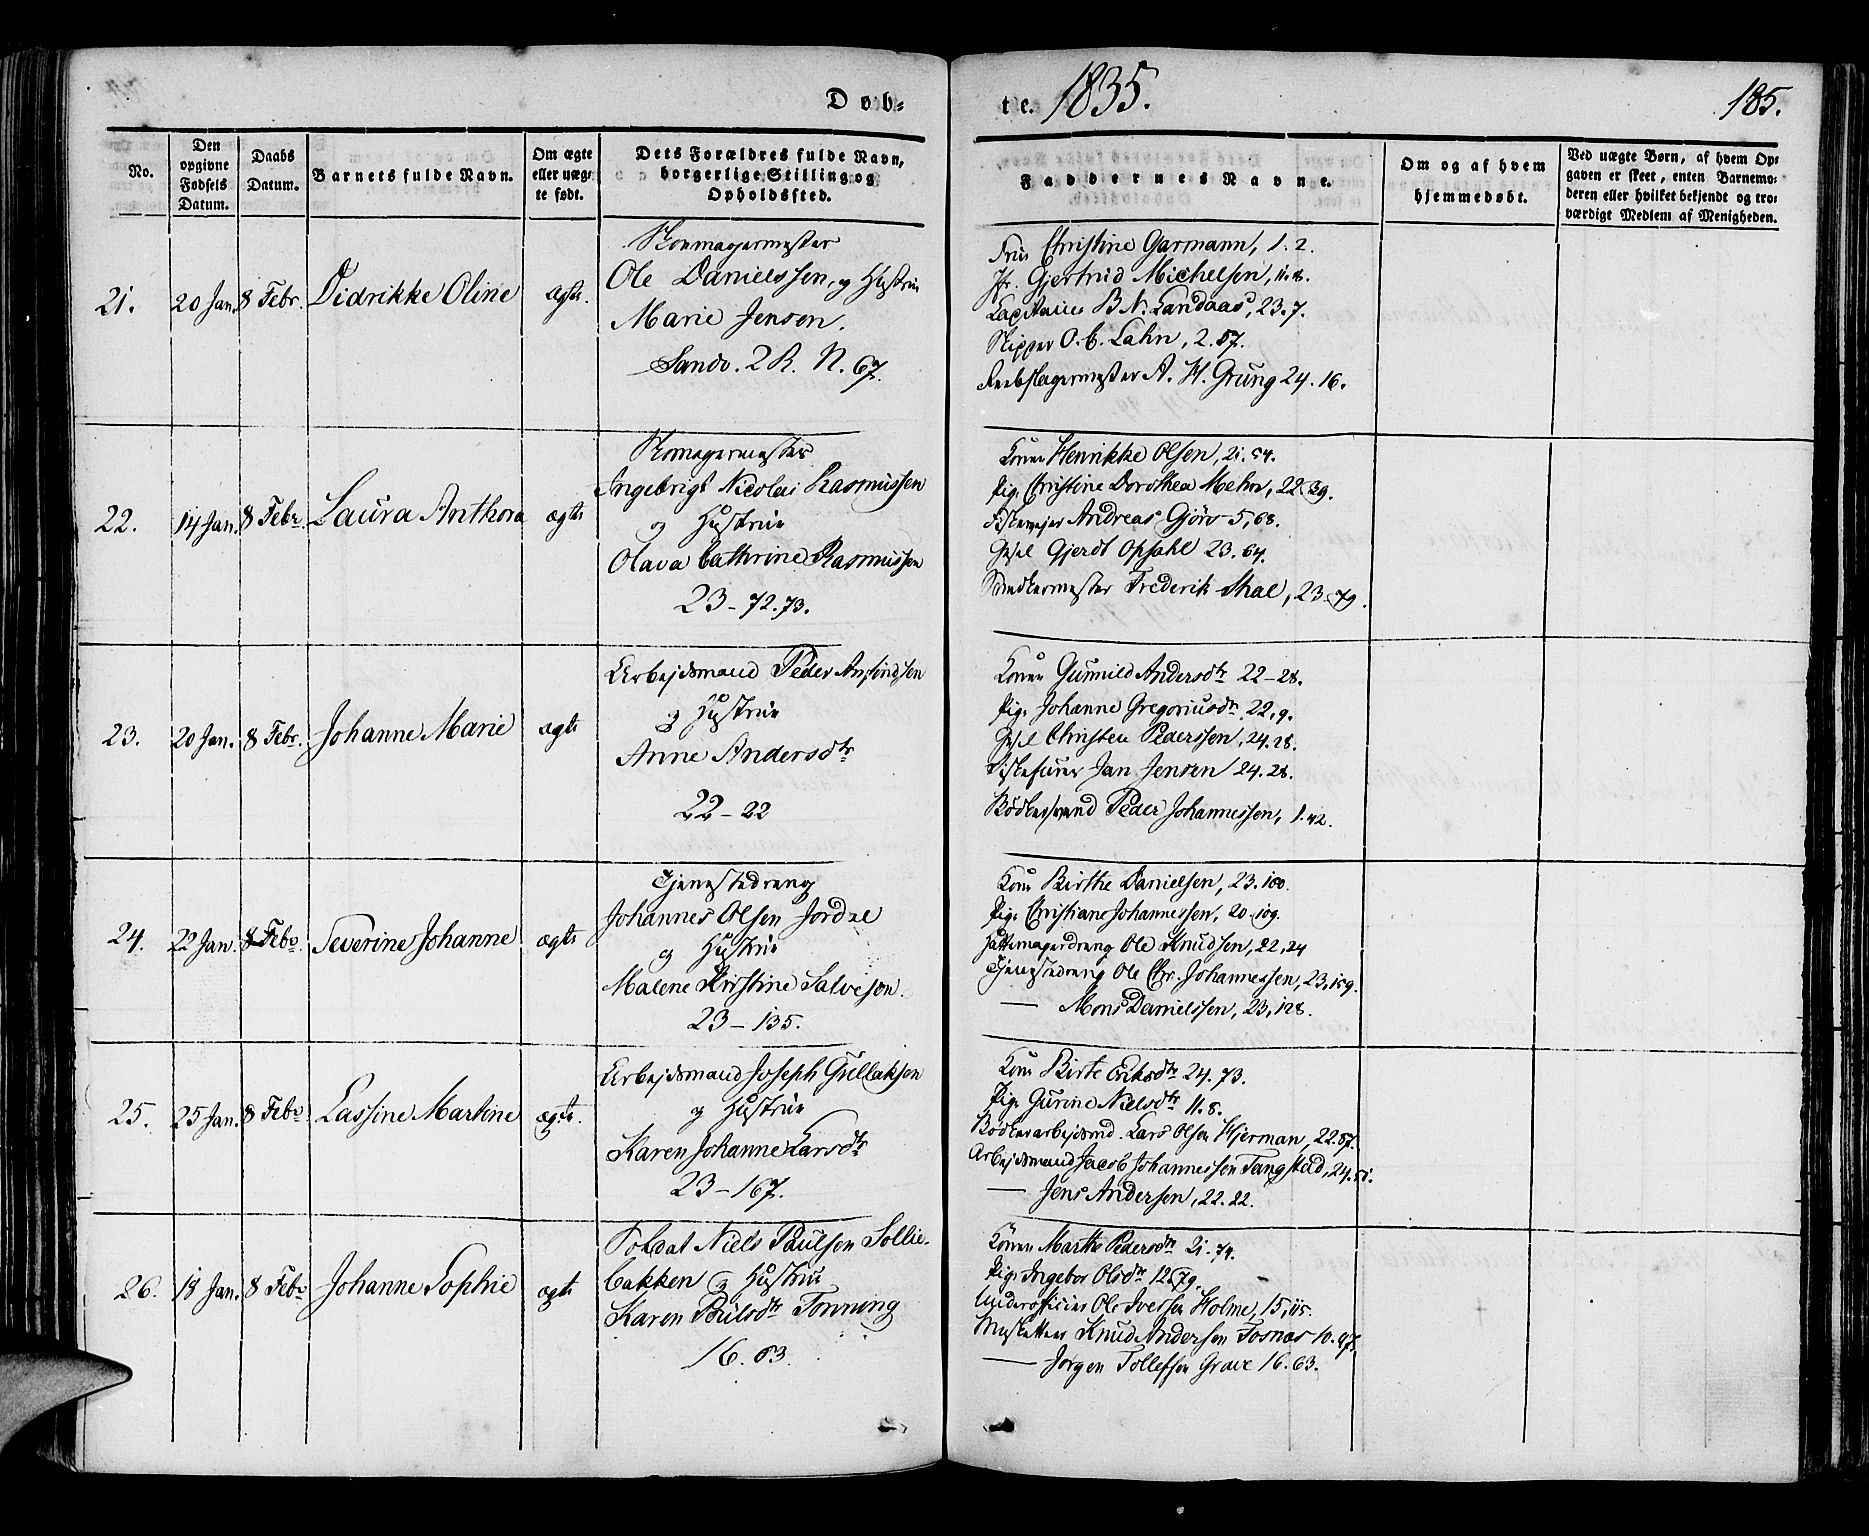 Døb-
te. 1835.
185.
No.
Den opgivne Fødsels Datum.
Daabs Datum.
Barnets fulde Navn.
Om ægte eller uægte født.
Dets Forældres fulde Navn, borgerlige Stilling og Opholdssted.
Faddernes Navne.
Om og af hvem hjemmedøbt.
Ved uægte Børn, af hvem Opgaven er skeet, enten Barnemoderen eller hvilket bekjendt og troværdigt Medlem af Menigheden.
21. 20 Jan. 8 Febr. Didrikke Oline ægte.
Skomagermester
Ole Danielssen, og Hustrue
Marie Jensen.
Sandv. 2 R. N. 67.
Frue Christine Garmann, 1. 2.
Jfr. Gjertrud Michelsen, 11. 8.
Capitaine B N. Landaas, 23. 7.
Skipper O. C. Lahn, 2. 57.
Reebslagermester A. H. Grung 24. 16.
22. 14 Jan. 8 Febr. Laura Anthora ægte
Skomagermester
Ingebrigt Nicolai Rasmussen
og Hustrue
Olava Cathrine Rasmussen
23 - 72. 73.
Konen Henrikke Olsen, 21. 54.
Pige Christine Dorothea Mehn, 22. 39.
Andreas Gjörv 5, 68.
Gjerdt Opsahl 23. 64.
Snedkermester Frederik Thal, 23. 79.
23. 20 Jan. 8 Febr. Johanne Marie ægte
Arbejdsmand Peder Amundsen
og Hustrue
Anne Andersdtr
22 - 22
Konen Gunnild Andersdtr 22 - 28.
Pige Johanne Gregoriusdtr 22, 9.
Christen Pederssen, 24. 28.
Jan Jensen 24. 28.
Bödkersvend Peder Johannessen, 1. 42.
24. 22 Jan. 8 Febr. Severine Johanne ægte
Tjenestedreng
Johannes Olsen Jordal
og Hustrue
Malene Kirstine Salvesen.
23 - 135.
Kone Birthe Danielsen, 23. 100.
Pige Christiane Johannessen, 20. 109.
Hattemagerdreng Ole Knudsen, 22, 24
Tjenestedreng Ole Chr. Johannessen, 23, 159.
— Mons Danielssen, 23, 128.
25. 25 Jan. 8 Febr. Lassine Martine ægte.
Arbejdsmand Joseph Gullaksen
og Hustrue
Karen Johanne Larsdtr
23 - 167.
Kone Birte Eriksdtr 24. 73.
Pige Gurine Nielsdtr 11. 8.
Bödkerarbejdsmd. Lars Olsen Hjerman, 22. 57.
Arbejdsmand Jacob Johannessen Tangstad, 24. 51.
— Jens Andersen, 22. 22.
26. 18 Jan. 8 Febr Johanne Sophie ægte
Soldat Niels Paulsen Sollie-
bakken og Hustrue
Karen Poulsdtr Tonning
16. 63.
Konen Marthe Pedersdtr 21. 74.
Pige Ingebor Olsdtr 12. 79.
Underofficier Ole Iversen Holme, 15, 115.
Musketteer Knud Andersen Fosnæs 10. 97.
— Jørgen Tollefsen Grave 16. 63.